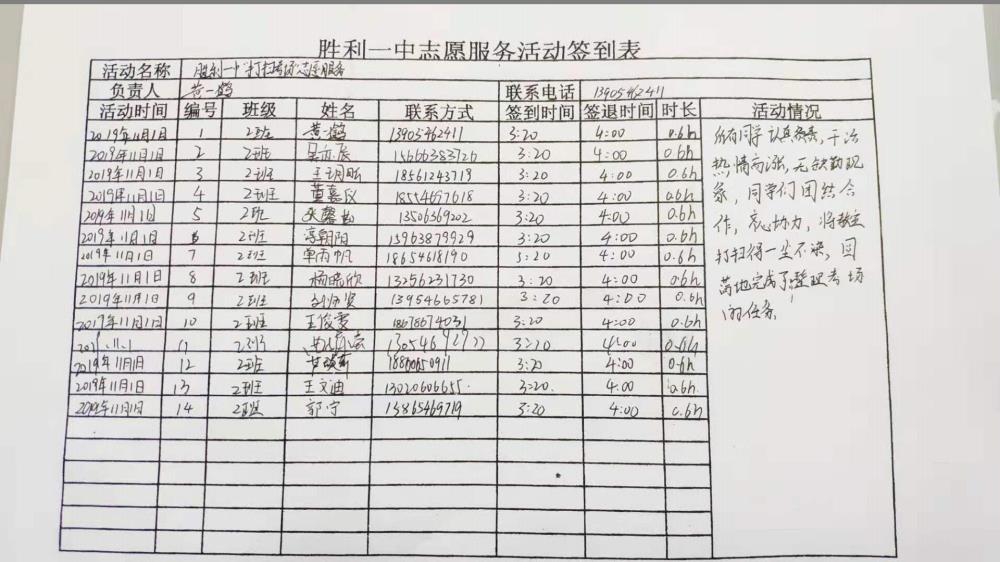 胜利一中志愿服务活动签到表
活动名称 胜利一中"打扫考场"志愿服务
负责人 黄一鹤 联系电话 13905462411
活动时间 编号 班级 姓名 联系方式 签到时间 签退时间 时长 活动情况
2019年11月1日 1 2班 黄一鹤 13905462411 3:20 4:00 0.6h
2019年11月1日 2 2班 吴亦辰 15666383726 3:20 4:00 0.6h
2019年11月1日 3 2班 18561243719 3:20 4:00 0.6h
2019年11月1日 4 2班 董嘉仪 18554697618 3:20 4:00 0.6h
2019年11月1日 5 2班 13506369202 3:20 4:00 0.6h
2019年11月1日 6 2班 朝阳 15963879929 3:20 4:00 0.6h
2019年11月1日 7 2班 单雨帆 18654618190 3:20 4:00 0.6h
2019年11月1日 8 2班 杨晓欣 13256231730 3:20 4:00 0.6h
2019年11月1日 9 2班 13954665781 3:20 4:00 0.6h
2019年11月1日 10 2班 王俊雯 18678674031 3:20 4:00 0.6h
11 2班 3:20 4:00 0.6h
2019年11月1日 12 2班 18860650911 3:20 4:00 0.6h
2019年11月1日 13 2班 王文迪 13020606655 3:20 4:00 0.6h
2019年11月1日 14 2班 郭宁 13865469719 3:20 4:00 0.6h
所有同学认真负责,干活
热情高涨,无缺勤现
象,同学们团结合
作,齐心协力,将教室
打扫得一尘不染,圆
满地完成了整理考场
的任务!